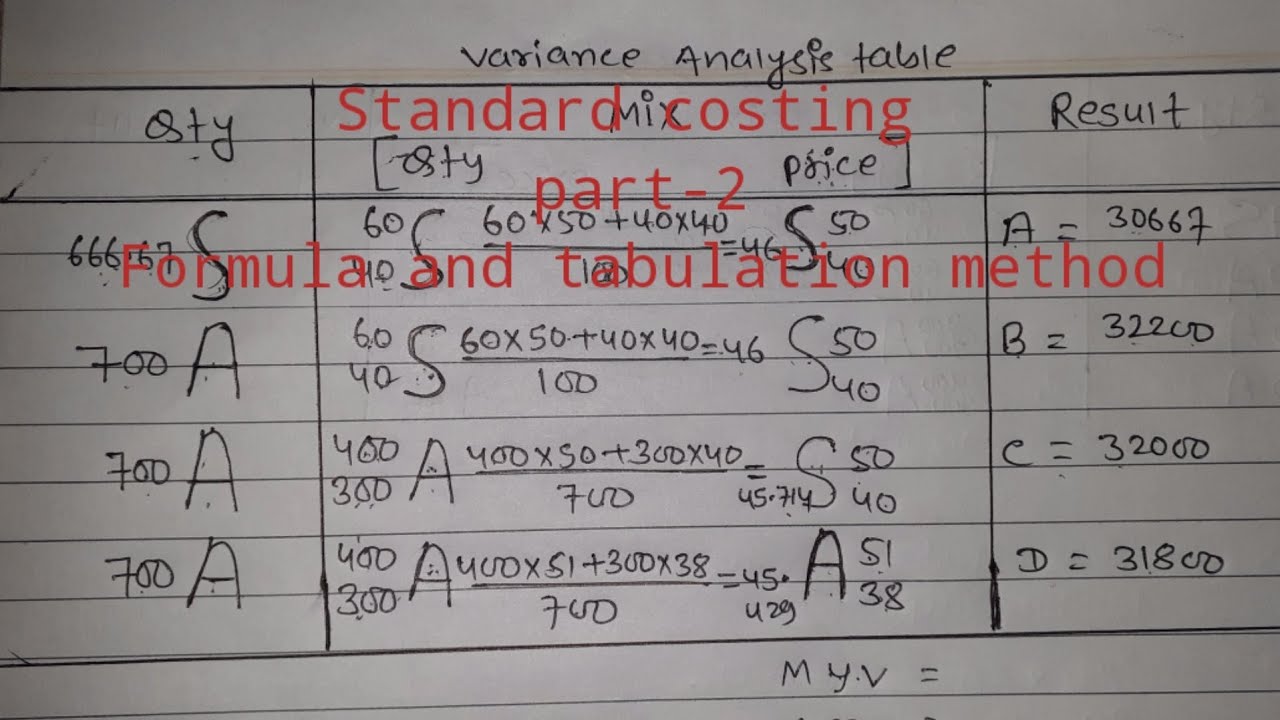 Variance Analysis table
Qty Mix Result
Standard costing
[Qty price]
part-2
666.67 S 60 40 S 60×50+40×40 / 100 = 46 S 50 40 A = 30667
Formula and tabulation method
700 A 60 40 S 60×50+40×40 / 100 = 46 S 50 40 B = 32200
700 A 400 300 A 400×50+300×40 / 700 = 45.714 S 50 40 C = 32000
700 A 400 300 A 400×51+300×38 / 700 = 45.429 A 51 38 D = 31800
M Y.V =